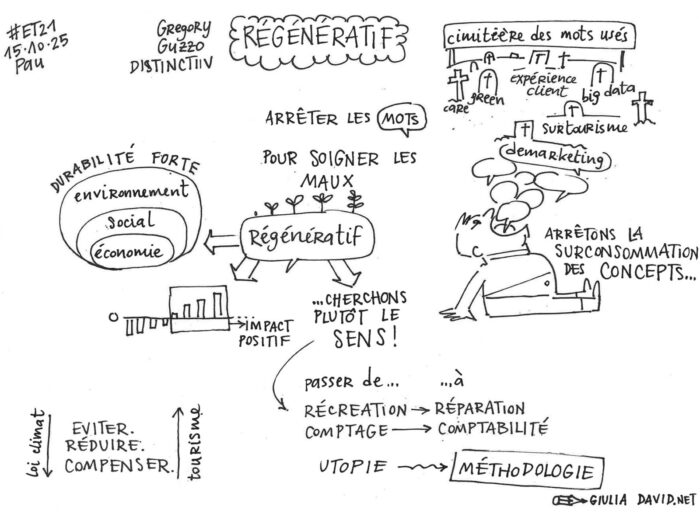 #ET21
15.10.25
Pau
Gregory
Guzzo
DISTINCTIIV
RÉGÉNÉRATIF
cimitéère des mots usés
care
green
expérience
client
big data
surtourisme
demarketing
ARRÊTER LES MOTS
POUR SOIGNER LES
MAUX
DURABILITÉ FORTE
environnement
social
économie
Régénératif
ARRÊTONS LA
SURCONSOMMATION
DES CONCEPTS...
0
IMPACT
POSITIF
...CHERCHONS
PLUTÔT LE
SENS!
passer de... ...à
RÉCREATION → RÉPARATION
COMPTAGE → COMPTABILITÉ
UTOPIE → MÉTHODOLOGIE
loi climat
EVITER.
RÉDUIRE.
COMPENSER.
tourisme
GIULIA DAVID.NET